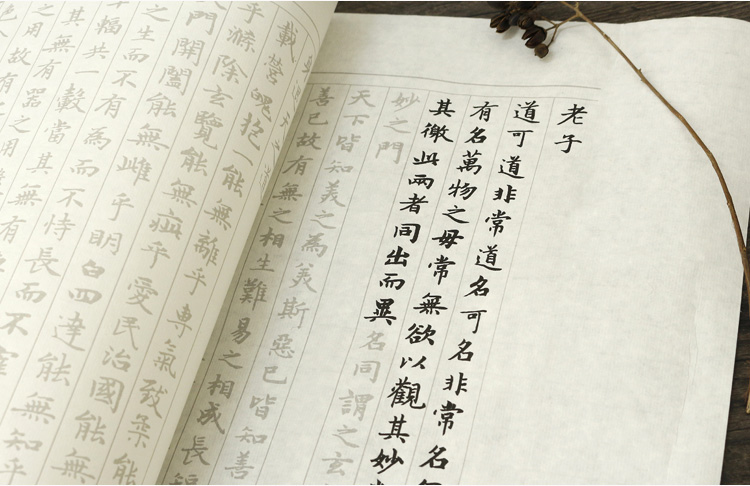 老子
道可道非常道名可名非常名
有名萬物之母常無欲以觀其妙
其徼此兩者同出而異名同謂之玄
妙之門
天下皆知美之為美斯惡已皆知善
善已故有無之相生難易之相成長
載營魄抱一能無離乎專氣致柔能
乎滌除玄覽能無疵乎愛民治國能無
門開闔能無雌乎明白四達能無知乎
之生而不有為而不恃長而不宰
輻共一轂當其無有
其無有器之用
之用故有